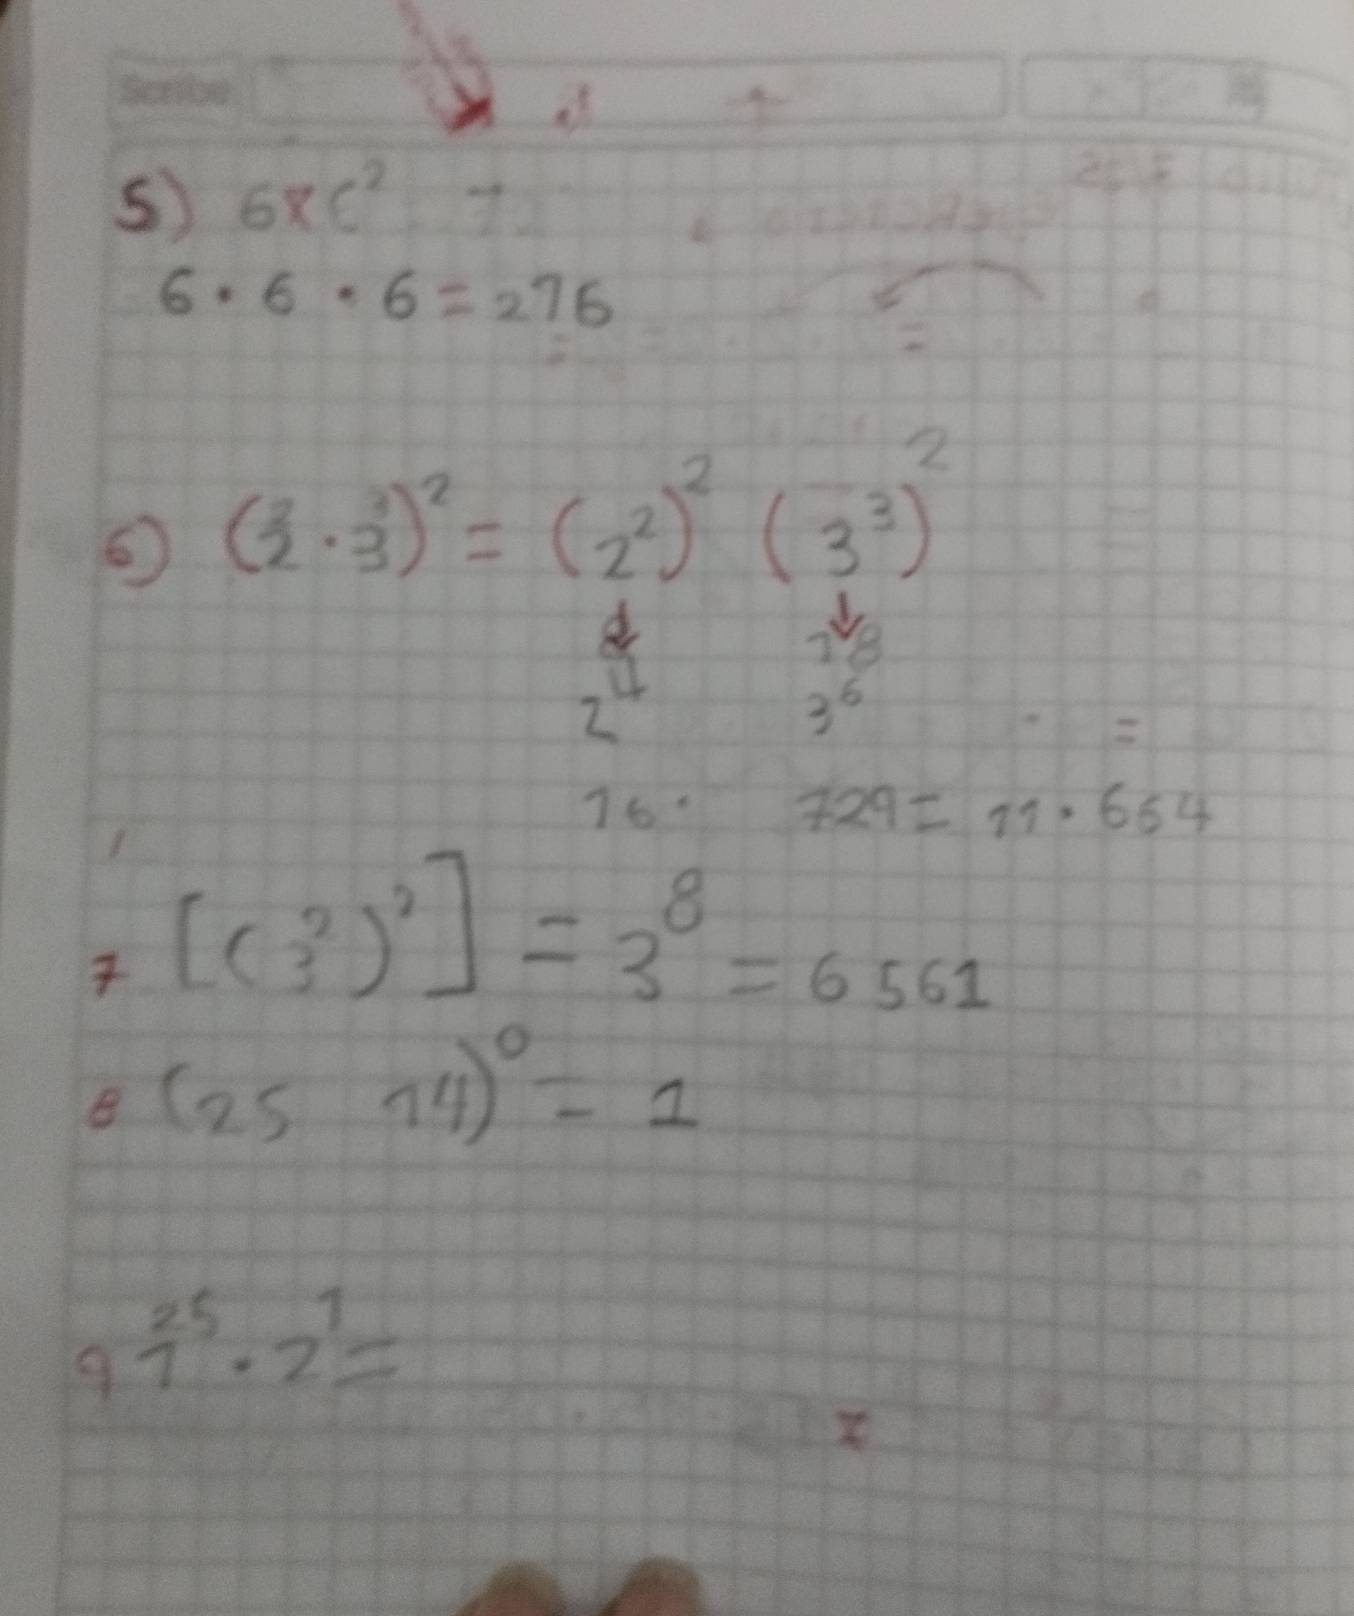 Scribe
5) 6x6² 7
6 · 6 · 6 = 276
6) (2² · 3³)² = (2²)² (3³)²
18
2⁴ 3⁶ =
16 · 729 = 11 · 664
7 [(3²)²] = 3⁸ = 6 561
8 (25 14)⁰ = 1
9 1²⁵ · 2¹ =